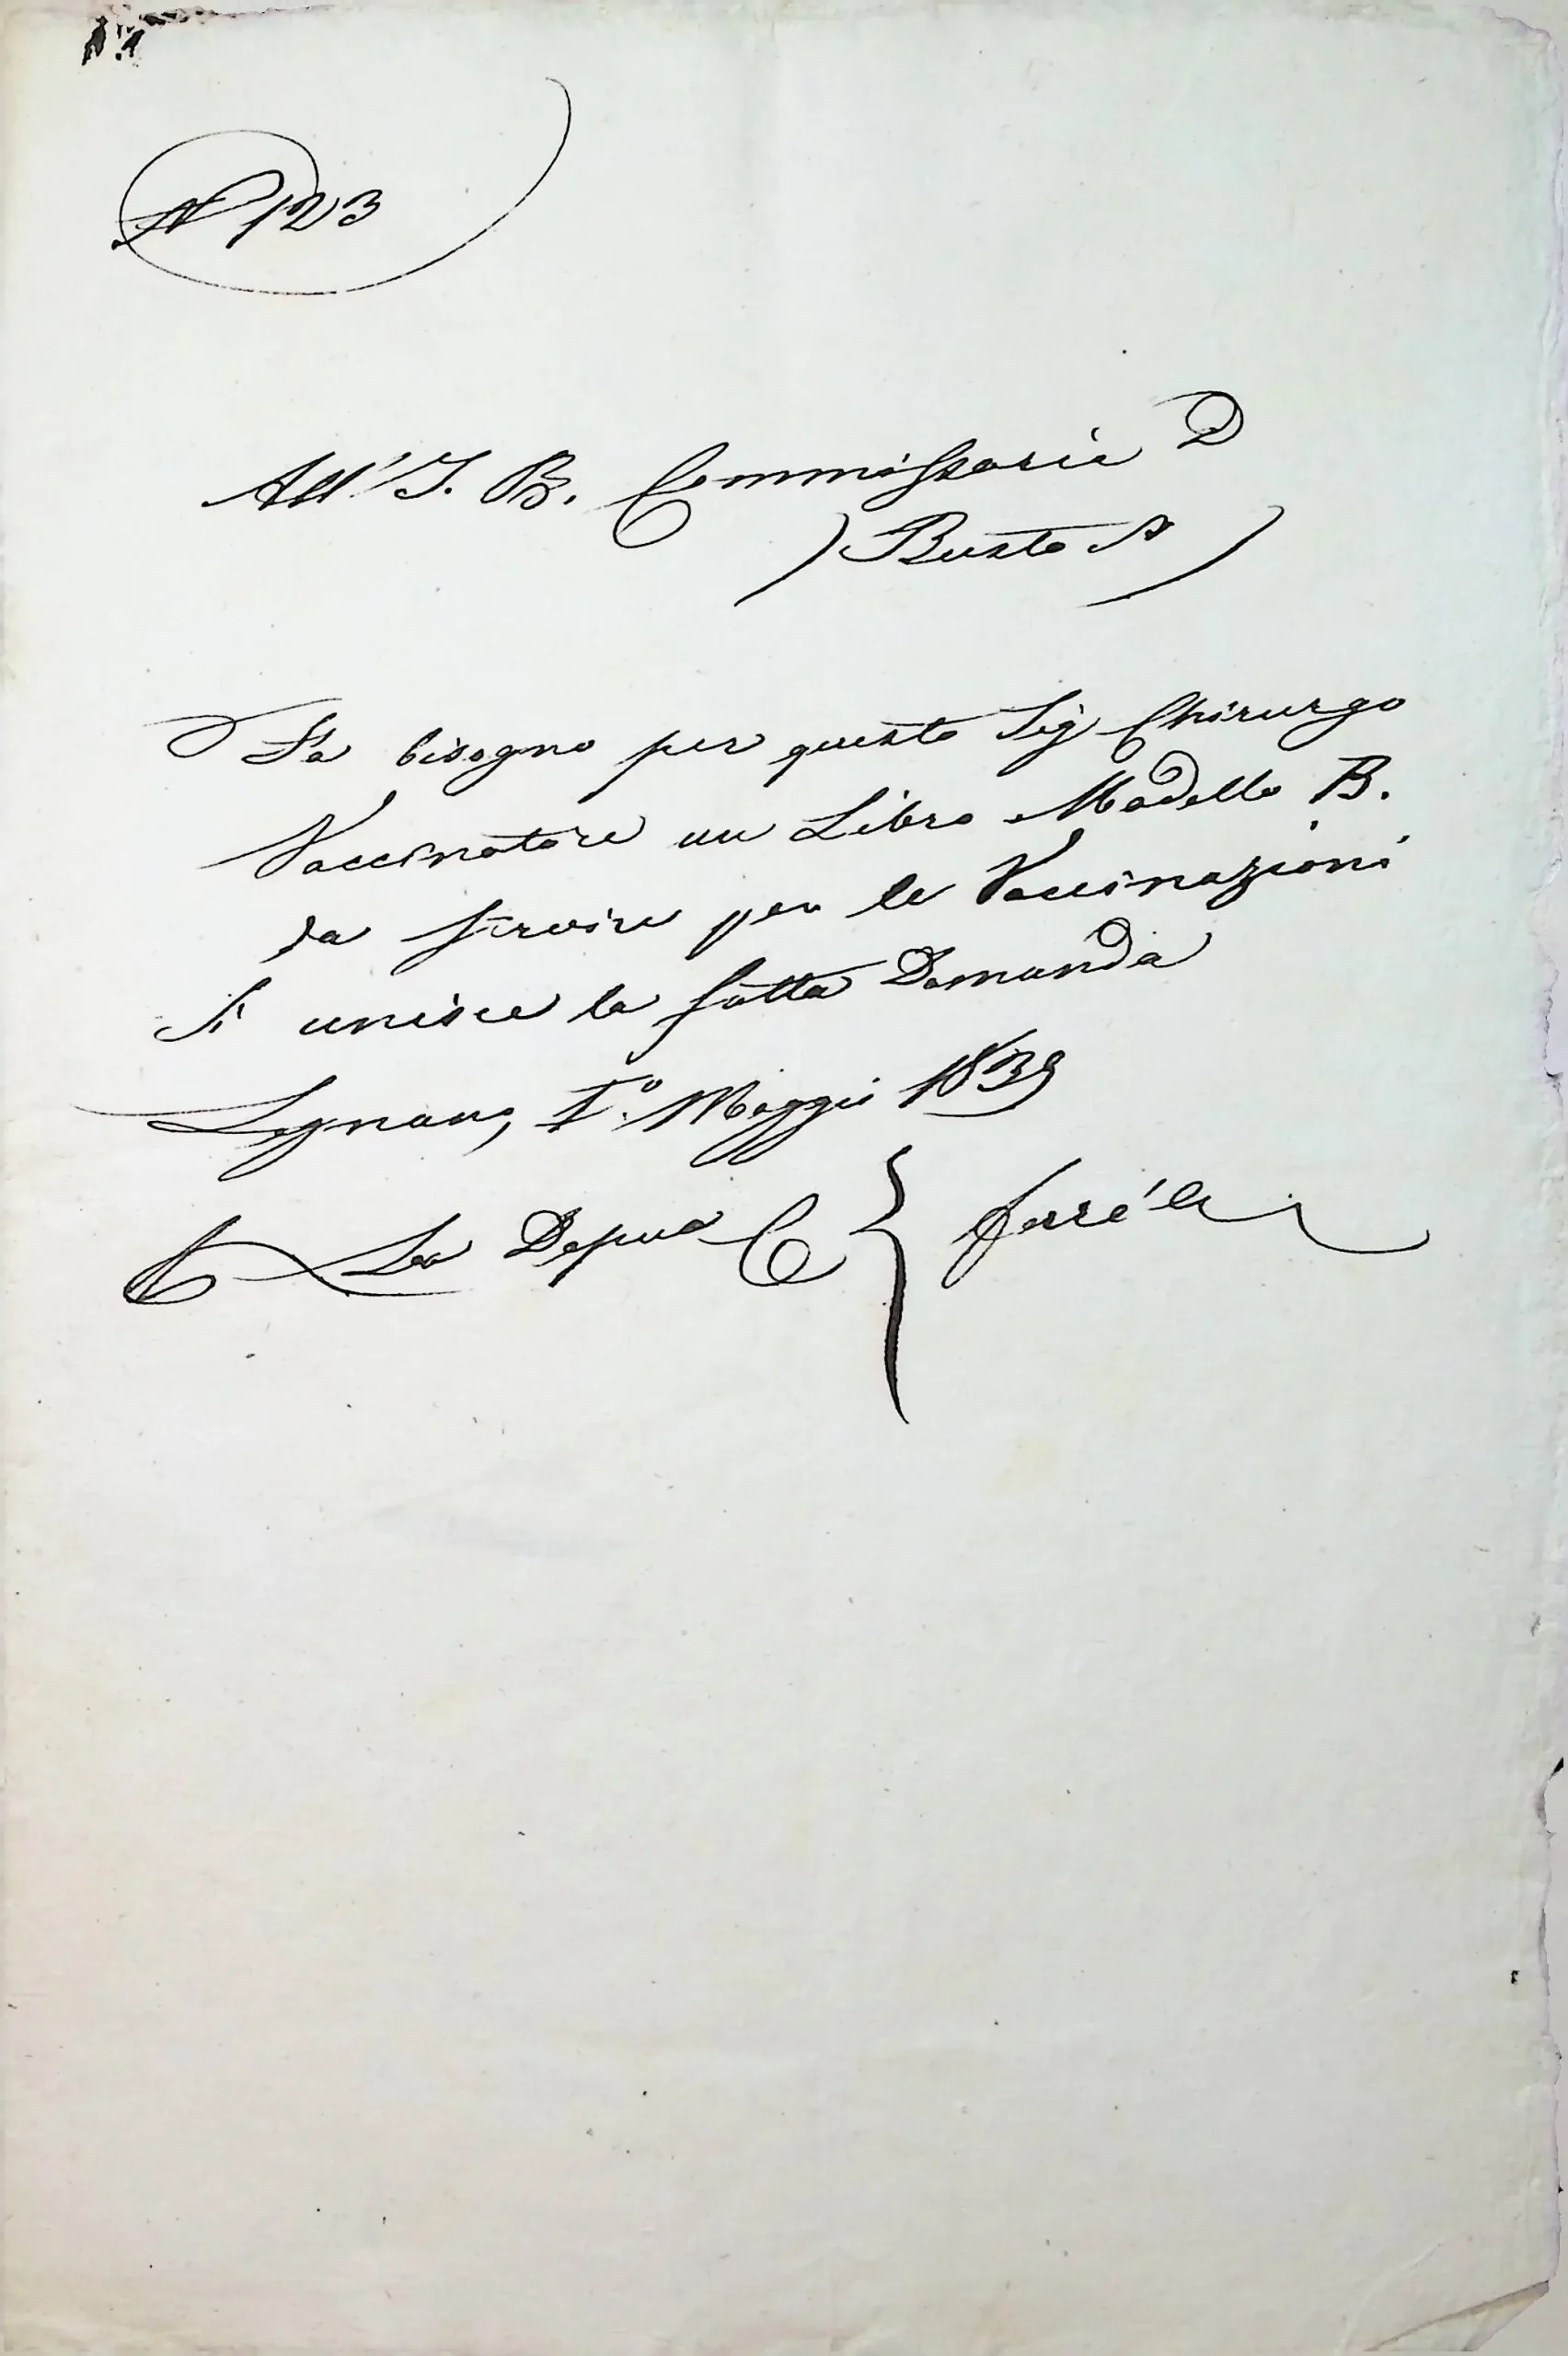 N 123
All' I. R. Commissario D
Busto A
Fa bisogno per questo Sig Chirurgo
Vaccinatore un Libro Modello B.
da servire per le Vaccinazioni
Si unisce la fatta Domanda
Legnano, 1° Maggio 1839
La Depu C